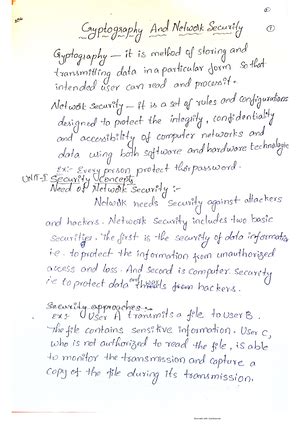 Cryptography And Network Security
①
Cryptography - it is method of storing and
transmitting data in a particular form so that
intended user can read and process it.
Network security - it is a set of rules and configurations
designed to protect the integrity, confidentiality
and accessibility of computer networks and
data using both software and hardware technologies
Ex:- Every person protect their password.
UNIT-I Security Concepts
Need of Network Security :-
Network needs security against attackers
and hackers. Network Security includes two basic
securities. The first is the security of data information
i.e. to protect the information from unauthorized
access and loss. And second is computer security
i.e. to protect data and threats from hackers.
Security approaches :-
Ex: User A transmits a file to user B.
The file contains sensitive information. User C,
who is not authorized to read the file, is able
to monitor the transmission and capture a
copy of the file during its transmission.